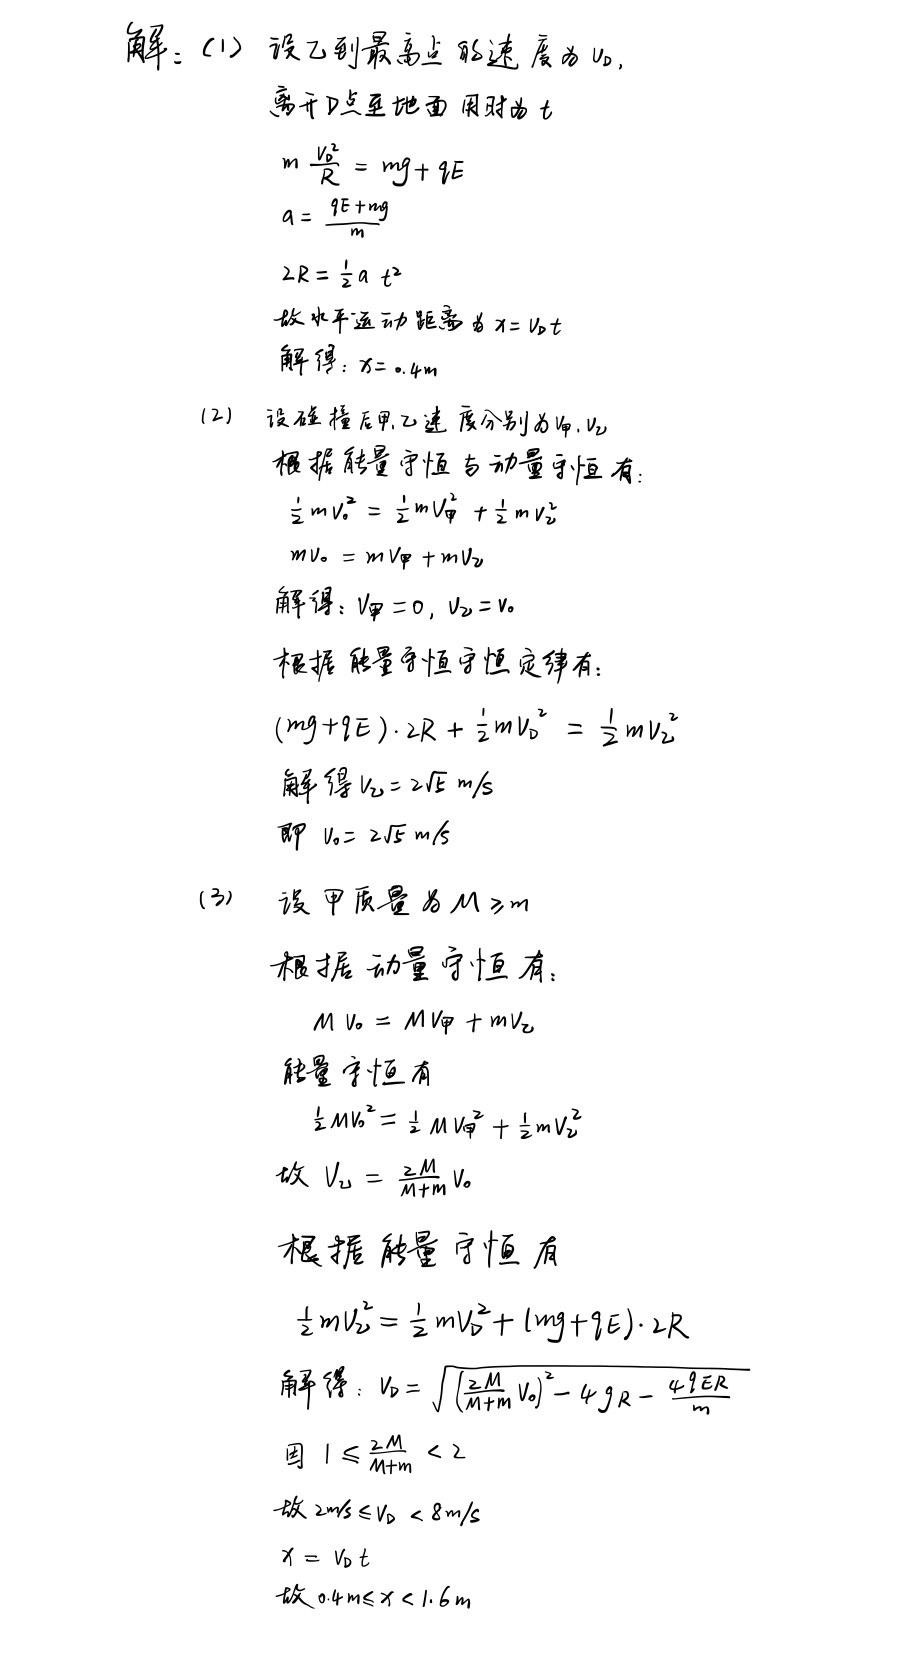 解：(1) 设乙到最高点的速度为 V_D，
离开D点至地面用时为 t
m V_D²/R = mg + qE
a = (qE+mg)/m
2R = 1/2 a t²
故水平运动距离为 x = V_D t
解得：x = 0.4m
(2) 设碰撞后甲、乙速度分别为 V甲、V乙
根据能量守恒与动量守恒有：
1/2 mV₀² = 1/2 mV甲² + 1/2 mV乙²
mV₀ = mV甲 + mV乙
解得：V甲 = 0，V乙 = V₀
根据能量守恒守恒定律有：
(mg+qE)·2R + 1/2 mV_D² = 1/2 mV乙²
解得 V乙 = 2√5 m/s
即 V₀ = 2√5 m/s
(3) 设甲质量为 M ≥ m
根据动量守恒有：
MV₀ = MV甲 + mV乙
能量守恒有
1/2 MV₀² = 1/2 MV甲² + 1/2 mV乙²
故 V乙 = 2M/(M+m) V₀
根据能量守恒有
1/2 mV乙² = 1/2 mV_D² + (mg+qE)·2R
解得：V_D = √((2M/(M+m) V₀)² − 4gR − 4qER/m)
因 1 ≤ 2M/(M+m) < 2
故 2m/s ≤ V_D < 8m/s
x = V_D t
故 0.4m ≤ x < 1.6m